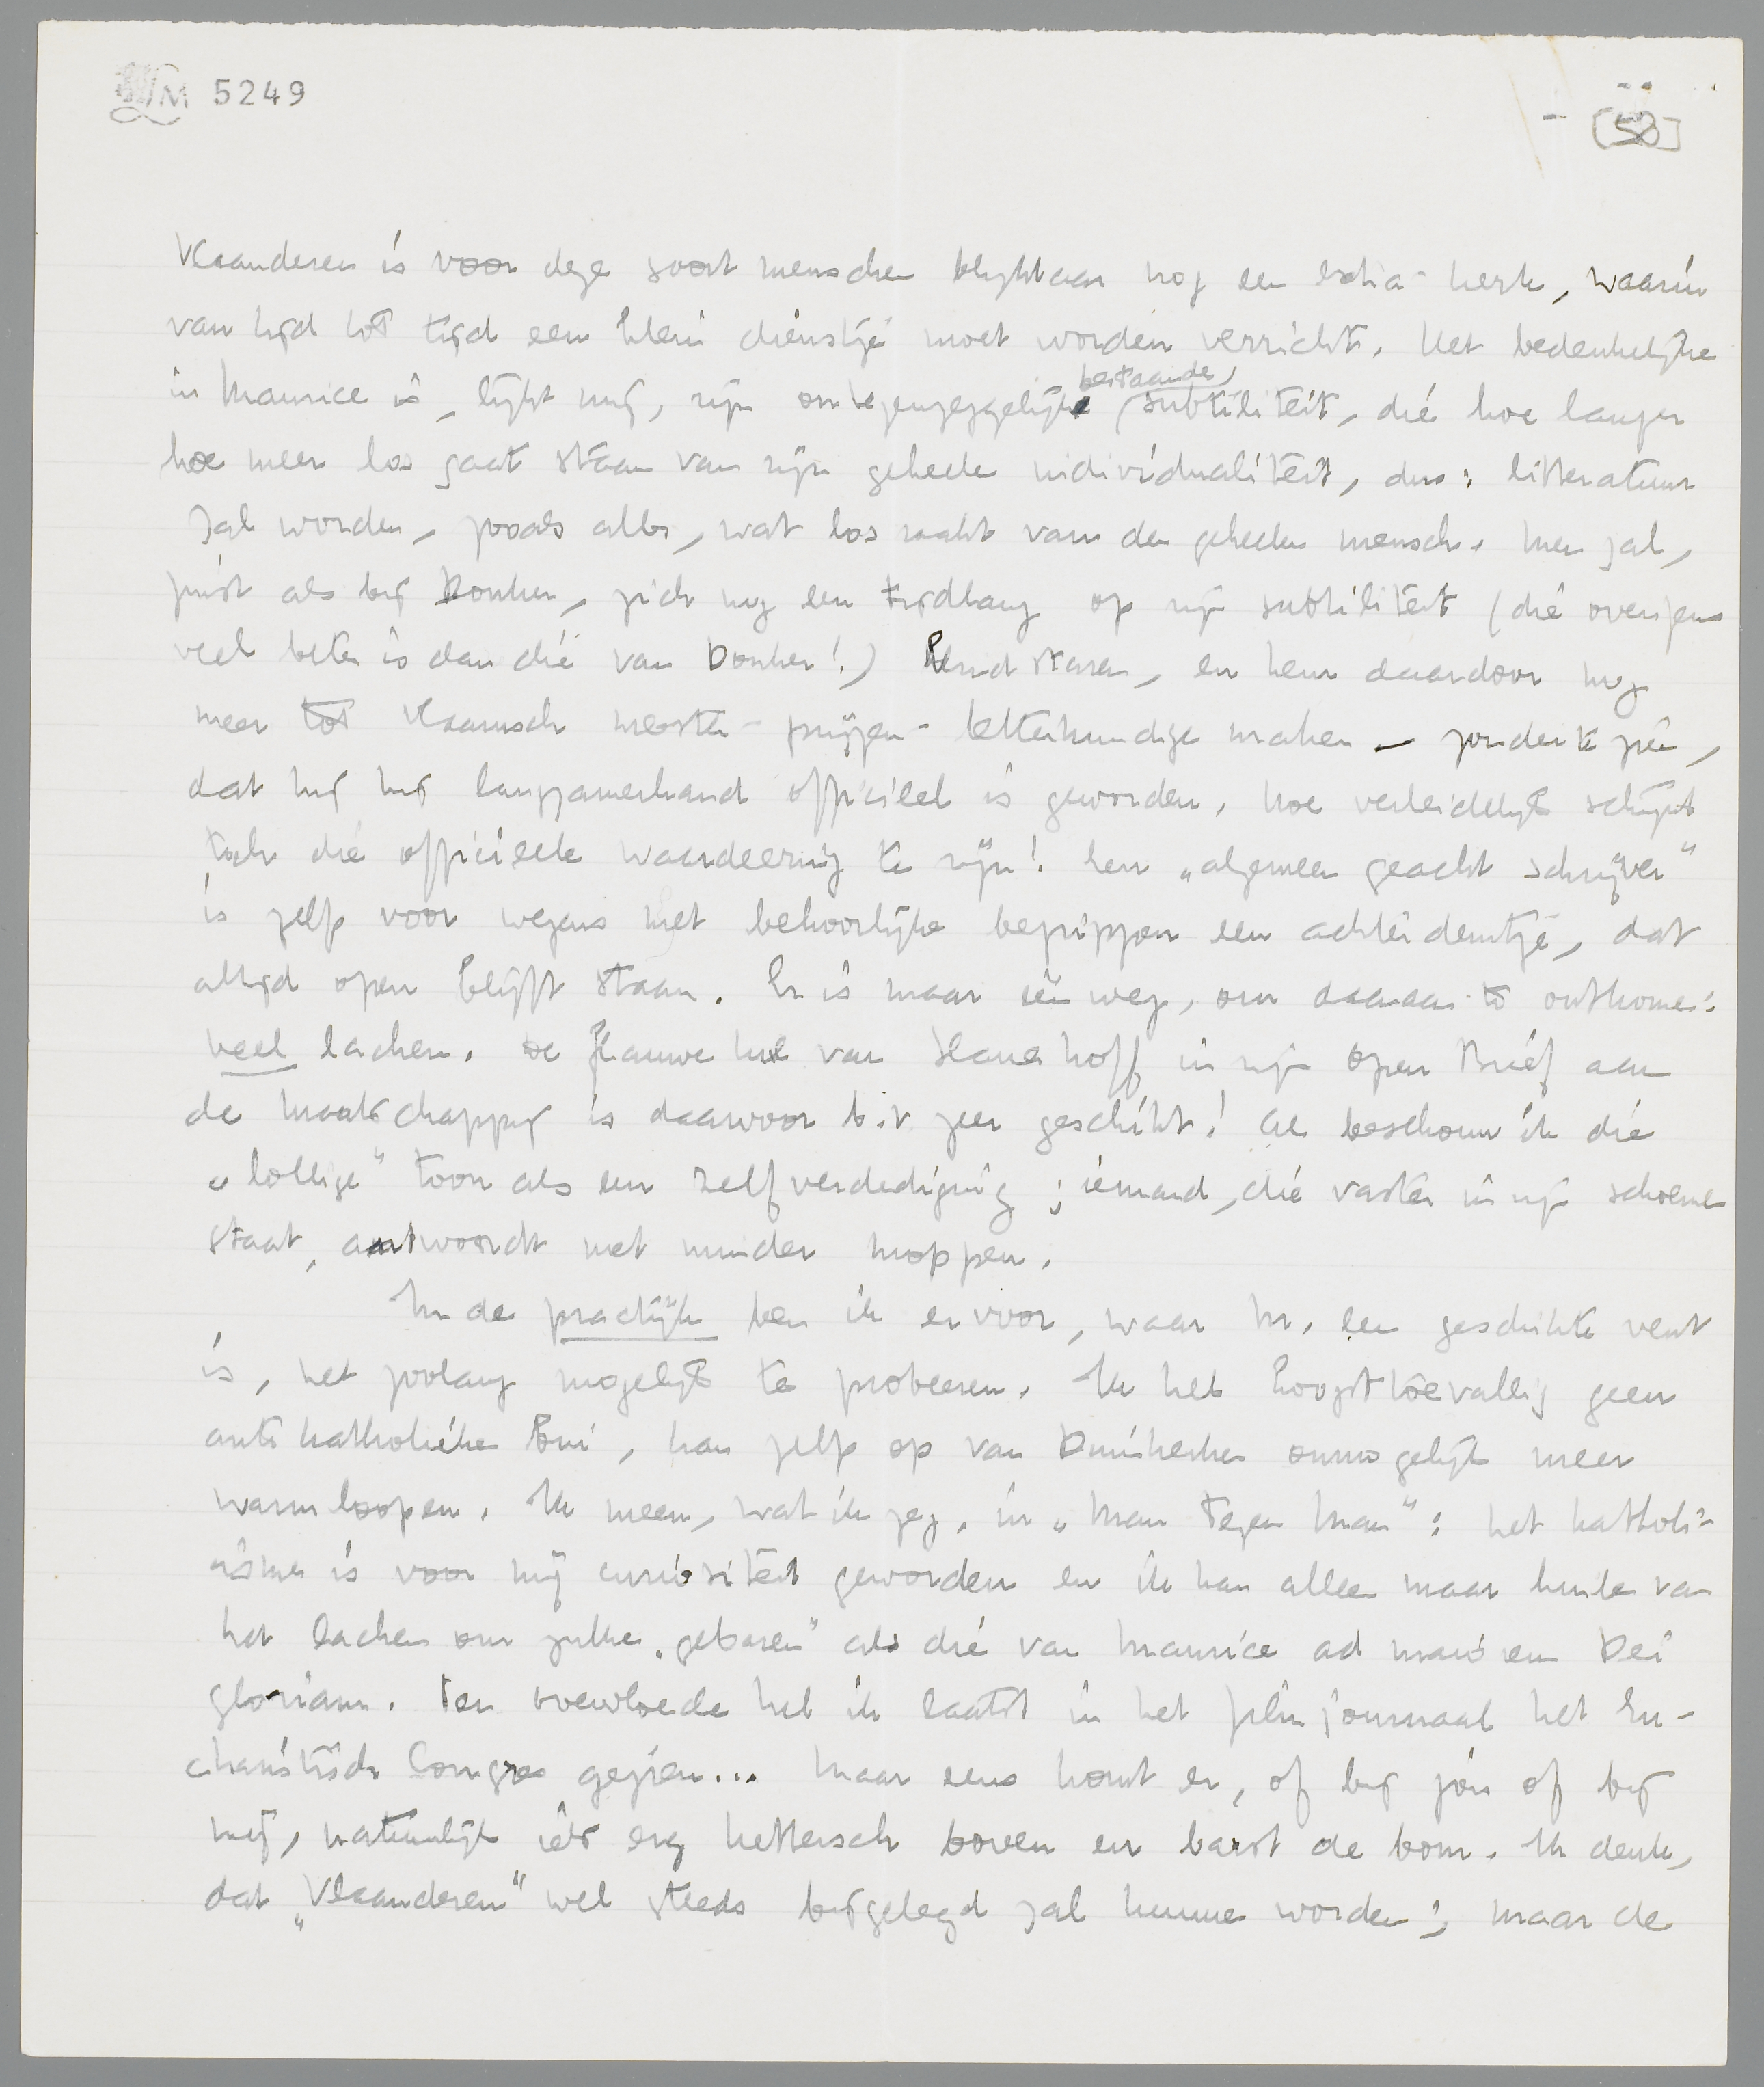 LM 5249
[58]
Vlaanderen is voor deze soort menschen blijkbaar nog een extra-kerk, waarin
van tijd tot tijd een klein dienstje moet worden verricht. Het bedenkelijke
in Maurice is, lijkt mij, zijn ontegenzeggelijk bestaande, subtiliteit, die hoe langer
hoe meer los gaat staan van zijn geheele individualiteit, dus: litteratuur
zal worden, zooals alles, wat los raakt van den geheelen mensch. Men zal,
juist als bij Donker, zich nog een tijdlang op zijn subtiliteit (die overigens
veel beter is dan die van Donker!) blind staren, en hem daardoor nog
meer tot Vlaamsch meester-prijzen-letterkundige maken – zonder te zien,
dat hij hij langzamerhand officieel is geworden. Hoe verleidelijk schijnt
toch die officieele waardeering te zijn! Een „algemeen geacht schrijver"
is zelfs voor wezens met behoorlijke begrippen een achterdeurtje, dat
altijd open blijft staan. Er is maar één weg, om daaraan te ontkomen:
veel lachen. De flauwe kul van Slauerhoff in zijn Open Brief aan
de Maatschappij is daarvoor b.v. zeer geschikt! Al beschouw ik die
„lollige" toon als een zelfverdediging; iemand, die vaster in zijn schoenen
staat, antwoordt met minder moppen.
In de practijk ben ik ervoor, waar M. een geschikte vent
is, het zoolang mogelijk te probeeren. Ik heb hoogst toevallig geen
antikatholieke bui, kan zelfs op van Duinkerken onmogelijk meer
warmloopen. Ik meen, wat ik zeg, in „Man tegen Man": het katholi-
cisme is voor mij curiositeit geworden en ik kan alleen maar huilen van
het lachen om zulke „gebaren" als die van Maurice ad maiorem Dei
gloriam. Ten overvloede heb ik laatst in het filmjournaal het Eu-
charistisch Congres gezien... Maar eens komt er, of bij jou of bij
mij, natuurlijk iets erg kettersch boven en barst de bom. Ik denk,
dat „Vlaanderen" wel steeds bijgelegd zal kunnen worden; maar de